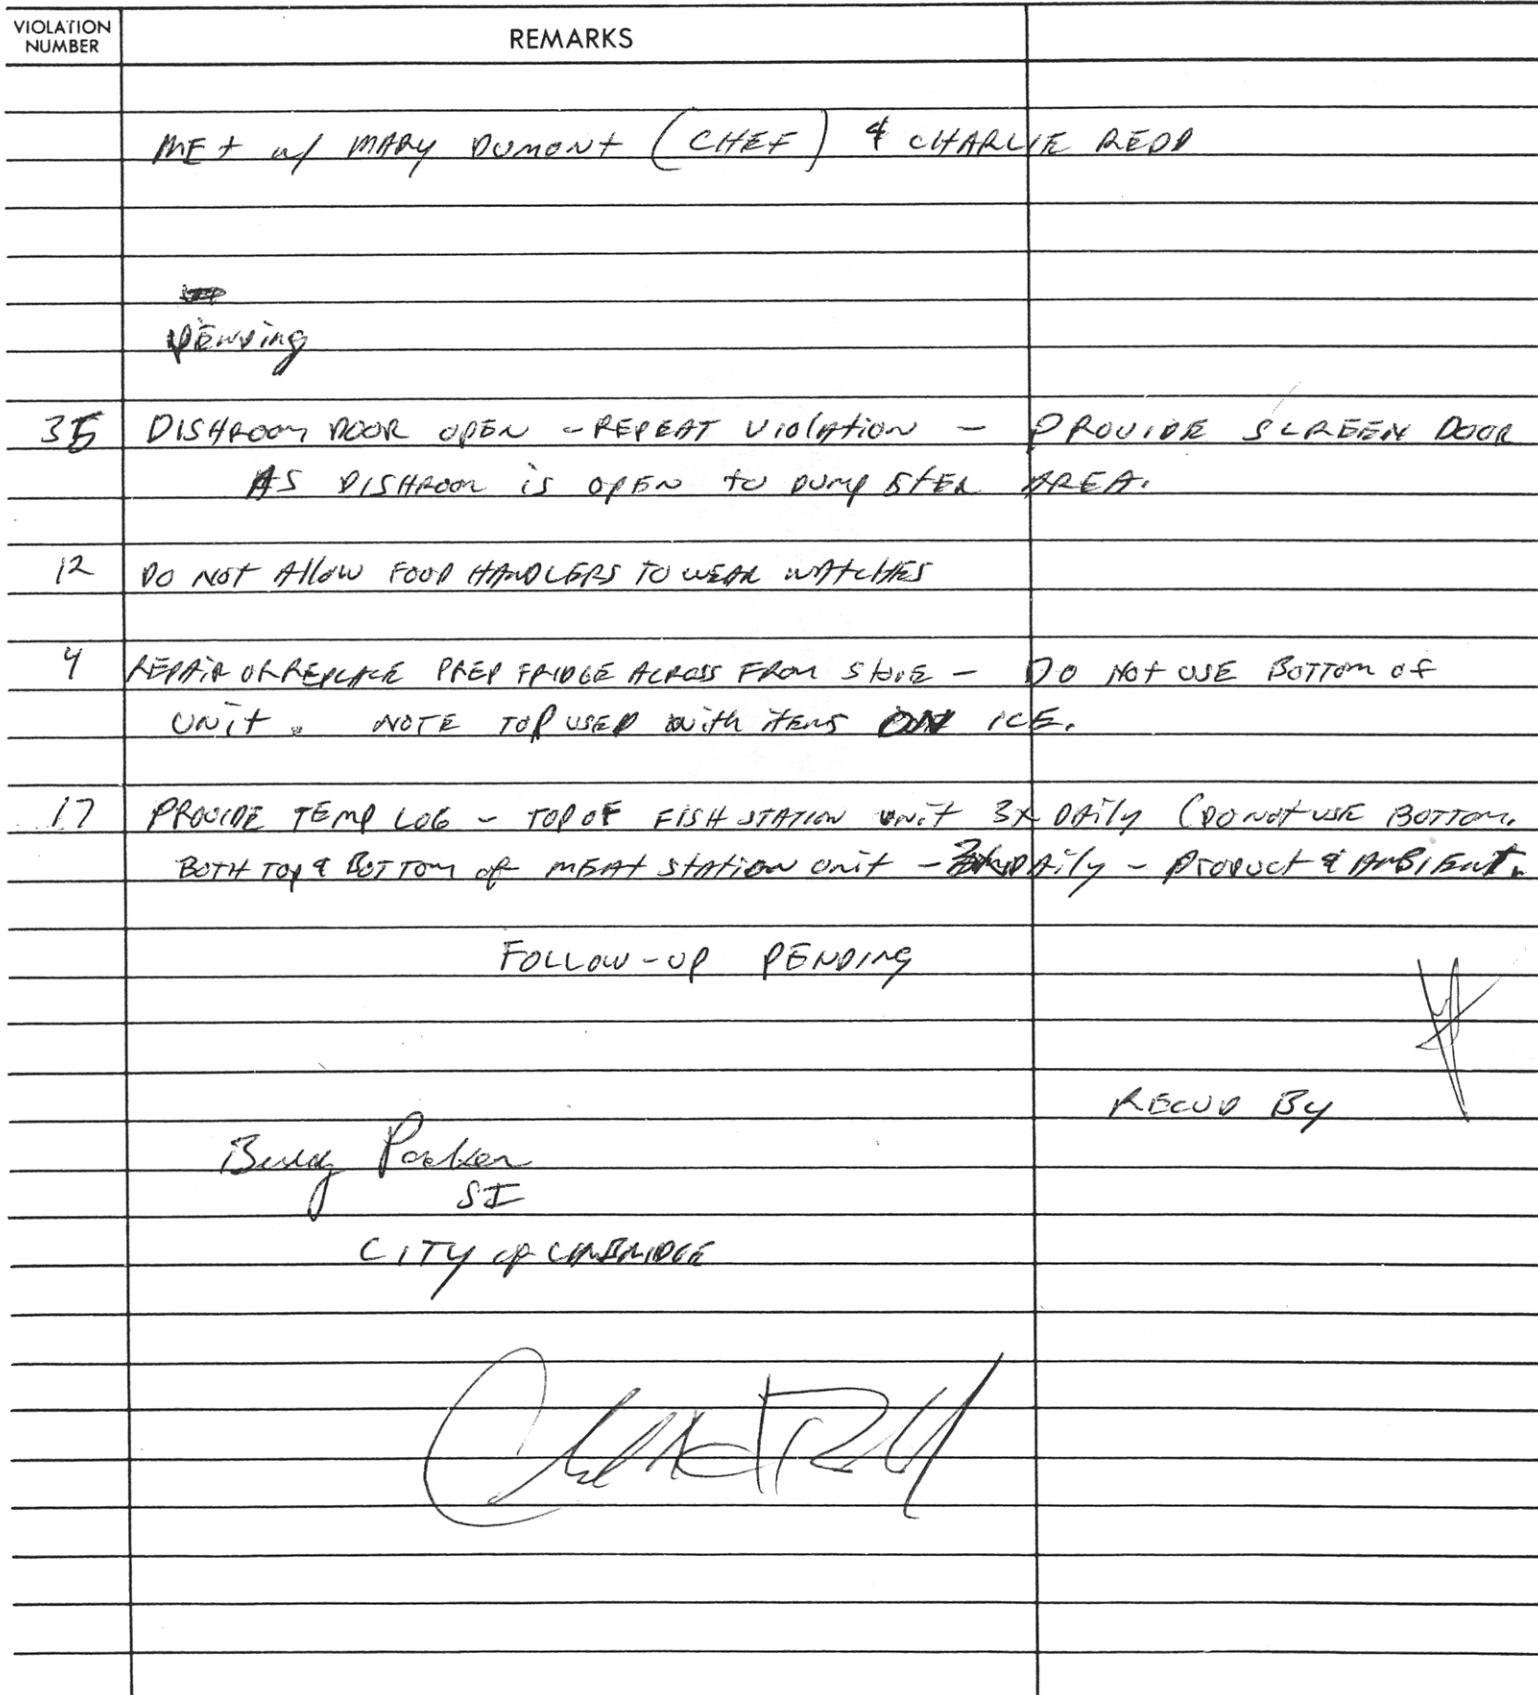 VIOLATION
NUMBER
REMARKS
MEt w/ MARY DUMONt (CHEF) & CHARLIE REDD
PENDing
35 DISHROOM DOOR OPEN - REPEAT ViolAtion - PROVIDE SCREEN DOOR
AS DISHROOM is OPEN to DUMPSTER AREA.
12 DO NOt Allow FOOD HANDLERS TO WEAR WAtCHES
4 REPAiR OR REPLACE PREP FRIDGE ACROSS FROM StOVE - DO NOt USE BOTTOM of
UNit. NOTE TOP USED with itEMS ON ICE.
17 PROVIDE TEMP LOG - TOP OF FISH STATION unit 3X DAily (DO NOt USE BOTTOM.
BOTH TOP & BOTTOM of MEAt StAtiON unit - DAily - PRODUCt & AMBIENT.
FOLLOW-UP PENDING
RECVD By
Parker
SI
CITY of CAMBRIDGE